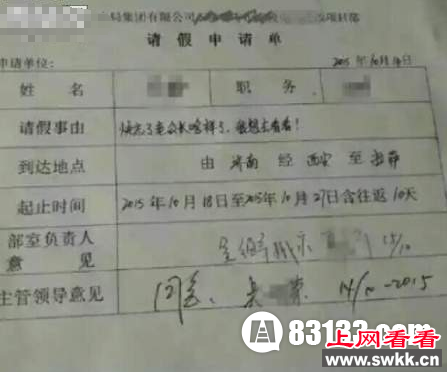 局集团有限公司 项目部
请假申请单
申请单位： 2015年10月14日
姓名 职务
请假事由 快忘了老公长啥样了，很想去看看！
到达地点 由 济南 经 西安 至 拉萨
起止时间 2015年10月18日至2015年10月27日含往返10天
部室负责人
意见 15/10
主管领导意见 同意。 14/10-2015
83133.com
上网看看
www.swkk.cn